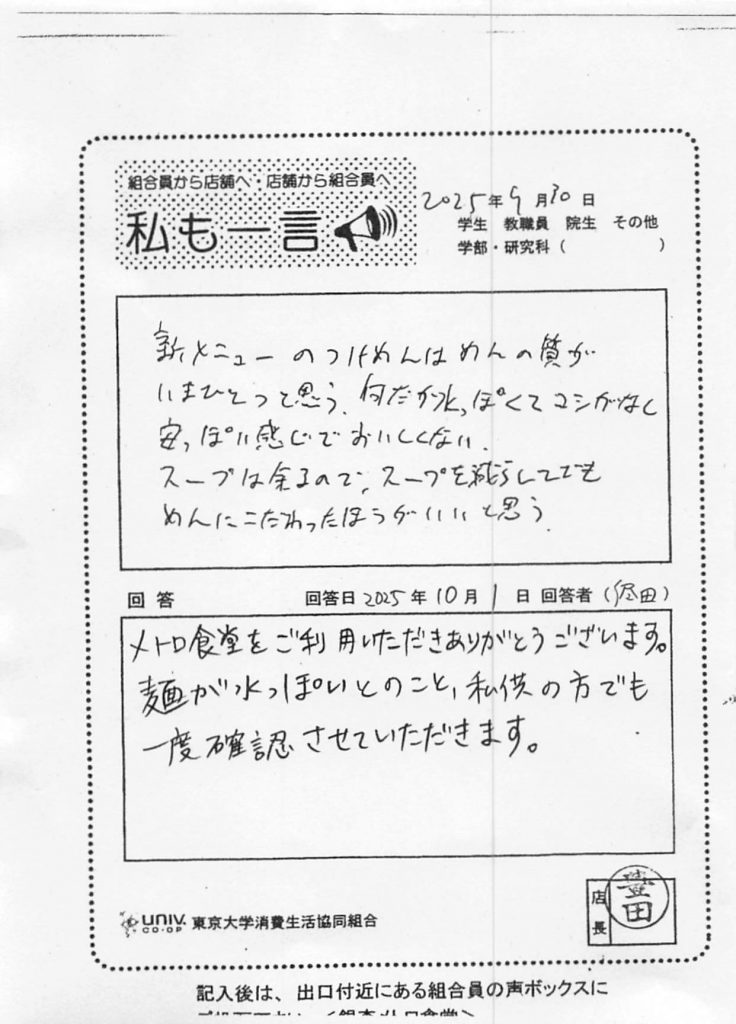 組合員から店舗へ・店舗から組合員へ
私も一言
2025年9月30日
学生 教職員 院生 その他
学部・研究科( )
新メニューのつけめんはめんの質が
いまひとつと思う。何だか水っぽくてコシがなく
安っぽい感じでおいしくない。
スープは余るので、スープを減らしてでも
めんにこだわったほうがいいと思う
回答 回答日 2025年10月1日 回答者(田)
メトロ食堂をご利用いただきありがとうございます。
麺が水っぽいとのこと、私供の方でも
一度確認させていただきます。
UNIV. CO-OP 東京大学消費生活協同組合
店長 豊田
記入後は、出口付近にある組合員の声ボックスに